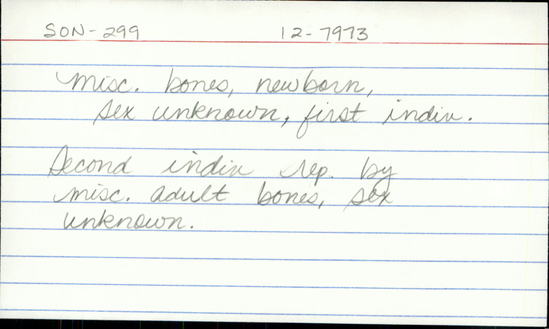 SON-299 12-7973
misc. bones, newborn,
sex unknown, first indiv.
Second indiv rep. by
misc. adult bones, sex
unknown.